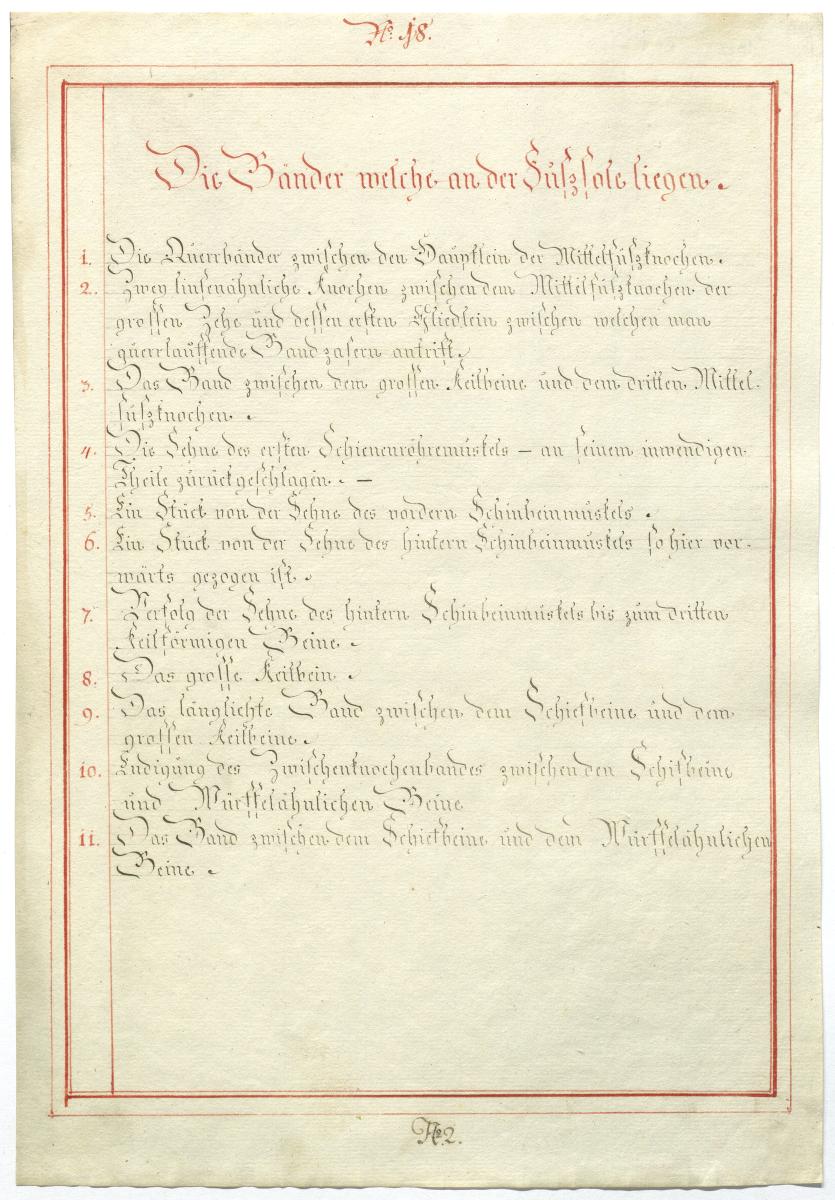 No. 18.
Die Bänder welche an der Fuſzſole liegen.
1. Die Querrbänder zwiſchen den Hauptlein der Mittelfuſzknochen.
2. Zwey linſenähnliche Knochen zwiſchen dem Mittelfuſzknochen der
groſſen Zehe und deſſen erſten Gliedlein zwiſchen welchen man
querrlauffende Bandzaſern antrift.
3. Das Band zwiſchen dem groſſen Keilbeine und dem dritten Mittel-
fuſzknochen.
4. Die Sehne des erſten Schienenröhremuskels – an ſeinem inwendigen
Theile zurückgeſchlagen. –
5. Ein Stück von der Sehne des vordern Schinbeinmuskels.
6. Ein Stück von der Sehne des hintern Schinbeinmuskels ſo hier vor-
wärts gezogen iſt.
7. Verfolg der Sehne des hintern Schinbeinmuskels bis zum dritten
keilförmigen Beine.
8. Das groſſe Keilbein.
9. Das länglichte Band zwiſchen dem Schiefbeine und dem
groſſen Keilbeine.
10. Endigung des Zwiſchenknochenbandes zwiſchen den Schifbeine
und Würffelähnlichen Beine
11. Das Band zwiſchen dem Schiefbeine und dem Würffelähnlichen
Beine.
No. 2.